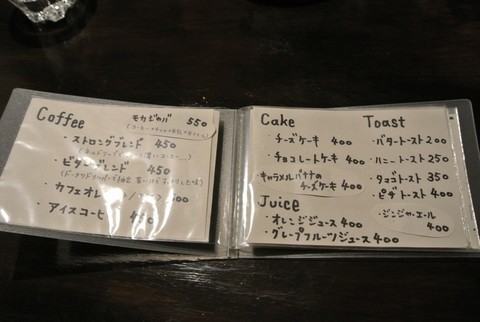 Coffee
モカジャバ 550
・ストロングブレンド 450
・ビターブレンド 450
・カフェオレ
・アイスコーヒー
Cake
・チーズケーキ 400
・チョコレートケーキ 400
キャラメルバナナの
チーズケーキ 400
Juice
・オレンジジュース 400
・グレープフルーツジュース 400
Toast
・バタートースト 200
・ハニートースト 250
・タマゴトースト 350
・ピザトースト 400
・ジンジャーエール
400